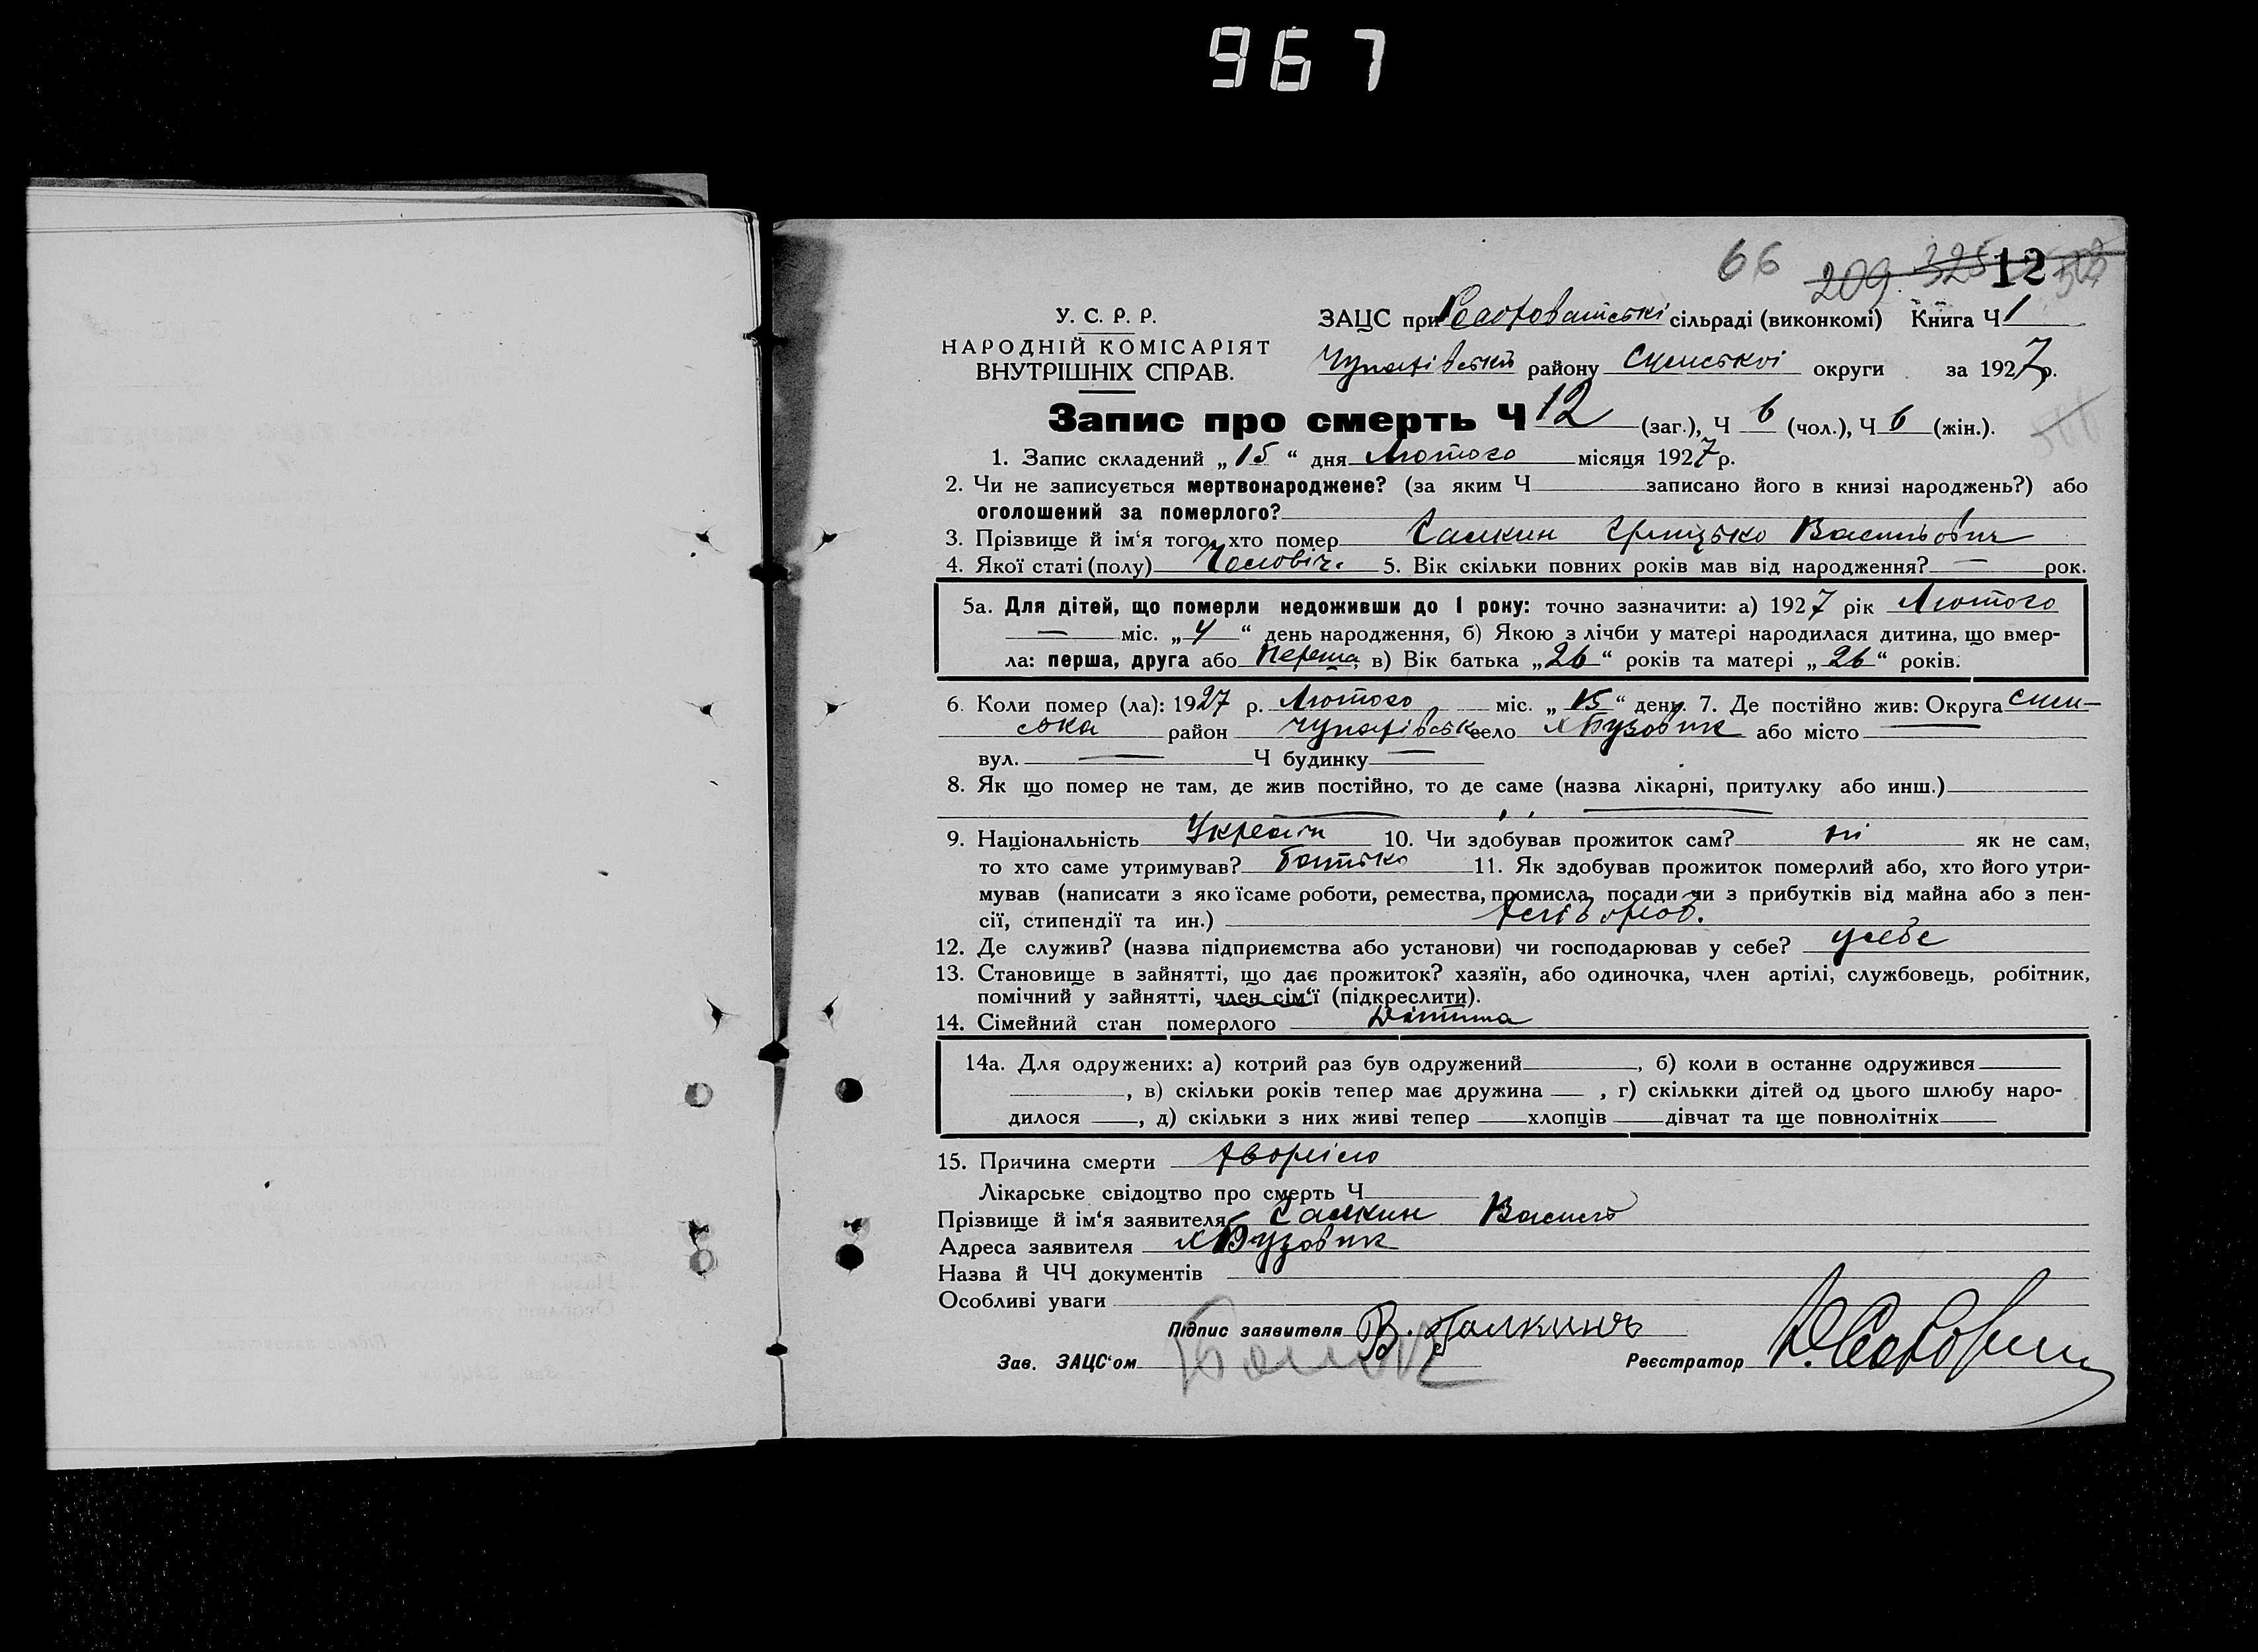 967
66 209 325 12
У. С. Р. Р.
НАРОДНІЙ КОМІСАРІЯТ
ВНУТРІШНІХ СПРАВ.
ЗАЦС при сільраді (виконкомі) Книга Ч 1
Чупахівськ району Сумської округи за 1927 р.
Запис про смерть Ч 12 (заг.), Ч 6 (чол.), Ч 6 (жін.).
1. Запис складений „15“ дня Лютого місяця 1927 р.
2. Чи не записується мертвонароджене? (за яким Ч записано його в книзі народжень?) або
оголошений за померлого?
3. Прізвище й ім‘я того, хто помер Галкин Грицько Васильович
4. Якої статі (полу) Чоловіч. 5. Вік скільки повних років мав від народження? — рок.
5а. Для дітей, що померли недоживши до 1 року: точно зазначити: а) 1927 рік Лютого
— міс. „4“ день народження, б) Якою з лічби у матері народилася дитина, що вмер-
ла: перша, друга або Перша, в) Вік батька „26“ років та матері „26“ років.
6. Коли помер (ла): 1927 р. Лютого міс. „15“ день. 7. Де постійно жив: Округа Сум-
ська район Чупахівськ село х Бузовик або місто —
вул. — Ч будинку —
8. Як що помер не там, де жив постійно, то де саме (назва лікарні, притулку або инш.)
9. Національність Україн 10. Чи здобував прожиток сам? ні як не сам,
то хто саме утримував? Батько 11. Як здобував прожиток померлий або, хто його утри-
мував (написати з якоїсаме роботи, ремества, промисла, посади чи з прибутків від майна або з пен-
сії, стипендії та ин.) хлібороб.
12. Де служив? (назва підприємства або установи) чи господарював у себе? у себе
13. Становище в зайнятті, що дає прожиток? хазяїн, або одиночка, член артілі, службовець, робітник,
помічний у зайнятті, член сім‘ї (підкреслити).
14. Сімейний стан померлого Дитина
14а. Для одружених: а) котрий раз був одружений , б) коли в останнє одружився
, в) скільки років тепер має дружина , г) скількки дітей од цього шлюбу наро-
дилося , д) скільки з них живі тепер хлопців дівчат та ще повнолітніх
15. Причина смерти хворіло
Лікарське свідоцтво про смерть Ч
Прізвище й ім‘я заявителя Галкин Василь
Адреса заявителя х Бузовик
Назва й ЧЧ документів
Особливі уваги
Підпис заявителя В. Галкинъ
Зав. ЗАЦС‘ом Реєстратор